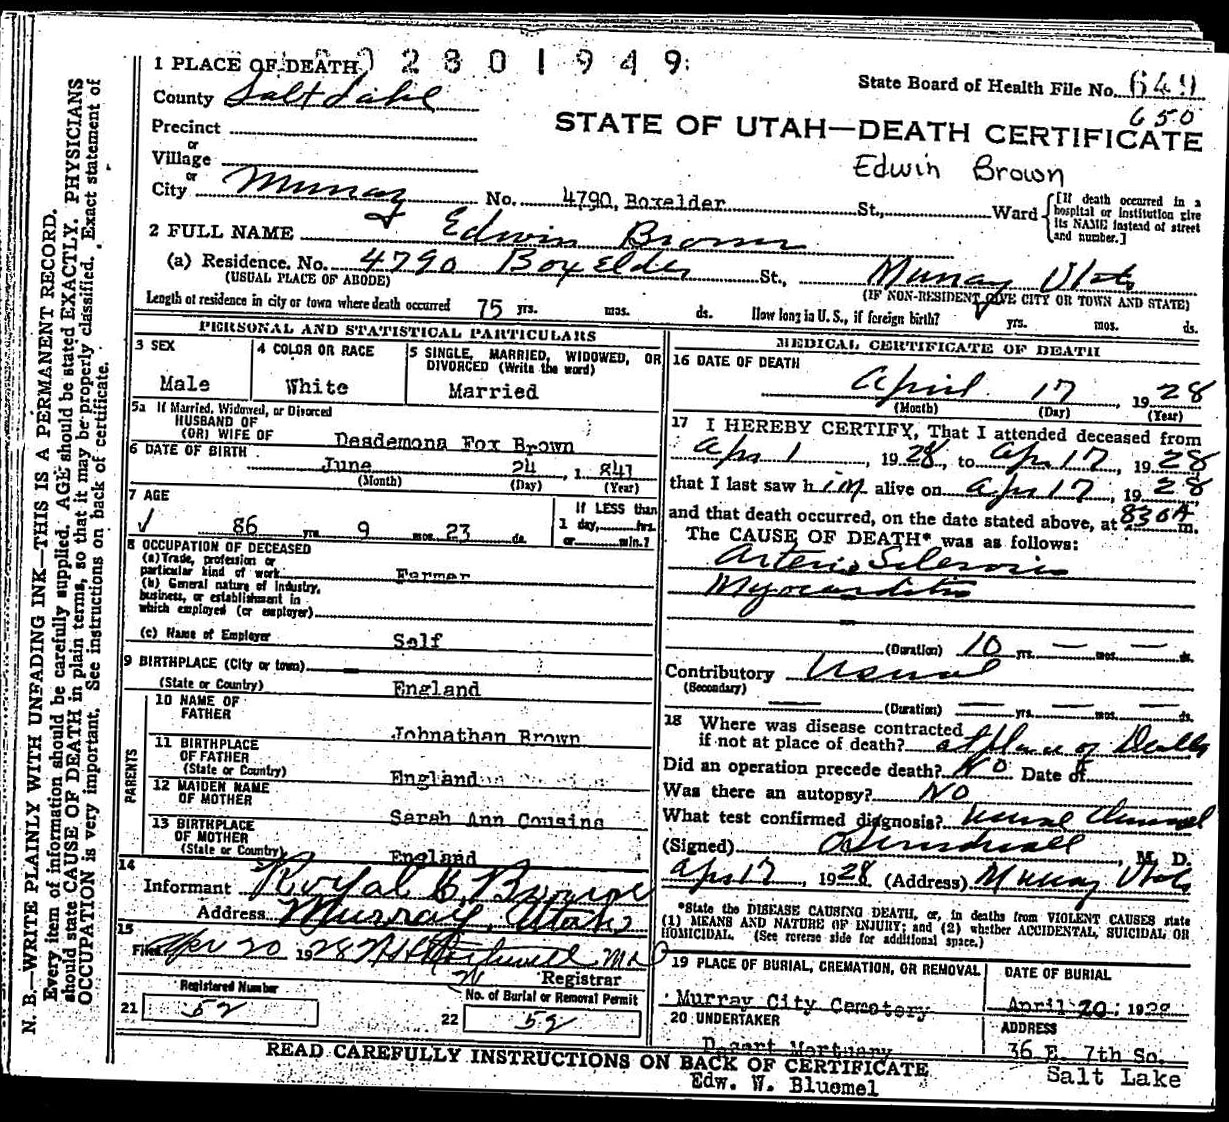 1 PLACE OF DEATH 0 2 8 0 1 9 4 9
State Board of Health File No. 649
650
County Salt Lake
STATE OF UTAH—DEATH CERTIFICATE
Precinct
or
Village
Edwin Brown
or
City Murray No. 4790 Boxelder St., Ward [If death occurred in a hospital or institution give its NAME instead of street and number.]
2 FULL NAME Edwin Brown
(a) Residence. No. 4790 Box Elder St., Murray Utah
(USUAL PLACE OF ABODE) (IF NON-RESIDENT GIVE CITY OR TOWN AND STATE)
Length of residence in city or town where death occurred 75 yrs. mos. ds. How long in U. S., if foreign birth? yrs. mos. ds.
PERSONAL AND STATISTICAL PARTICULARS
3 SEX
Male
4 COLOR OR RACE
White
5 SINGLE, MARRIED, WIDOWED, OR
DIVORCED (Write the word)
Married
5a If Married, Widowed, or Divorced
HUSBAND OF
(OR) WIFE OF Desdemona Fox Brown
6 DATE OF BIRTH June 24, 1841
(Month) (Day) (Year)
7 AGE
86 yrs. 9 mos. 23 ds.
If LESS than
1 day, hrs.
or min.?
8 OCCUPATION OF DECEASED
(a) Trade, profession or
particular kind of work Farmer
(b) General nature of Industry,
business, or establishment in
which employed (or employer)
(c) Name of Employer Self
9 BIRTHPLACE (City or town)
(State or Country) England
PARENTS
10 NAME OF
FATHER Johnathan Brown
11 BIRTHPLACE
OF FATHER
(State or Country) England
12 MAIDEN NAME
OF MOTHER Sarah Ann Cousins
13 BIRTHPLACE
OF MOTHER
(State or Country) England
14
Informant Royal C. Brown
Address Murray, Utah
15
Filed Apr 20 1928
Registrar
Registered Number
21 52
No. of Burial or Removal Permit
22 52
MEDICAL CERTIFICATE OF DEATH
16 DATE OF DEATH
April 17, 1928
(Month) (Day) (Year)
17 I HEREBY CERTIFY, That I attended deceased from
Apr 1, 1928, to Apr 17, 1928
that I last saw him alive on Apr 17, 1928
and that death occurred, on the date stated above, at 830 A m.
The CAUSE OF DEATH* was as follows:
Arterio Sclerosis
Myocarditis
(Duration) 10 yrs. — mos. — ds.
Contributory
(Secondary)
(Duration) — yrs. — mos. — ds.
18 Where was disease contracted
if not at place of death? at place of Death
Did an operation precede death? No Date of
Was there an autopsy? No
What test confirmed diagnosis? Usual Clinical
(Signed) , M. D.
Apr 17 1928 (Address) Murray Utah
*State the DISEASE CAUSING DEATH, or, in deaths from VIOLENT CAUSES state
(1) MEANS AND NATURE OF INJURY; and (2) whether ACCIDENTAL, SUICIDAL OR
HOMICIDAL. (See reverse side for additional space.)
19 PLACE OF BURIAL, CREMATION, OR REMOVAL
Murray City Cemetery
DATE OF BURIAL
April 20, 1928
20 UNDERTAKER
Mortuary
ADDRESS
36 E. 7th So.
Salt Lake
READ CAREFULLY INSTRUCTIONS ON BACK OF CERTIFICATE
Edw. W. Bluemel
N. B.—WRITE PLAINLY WITH UNFADING INK—THIS IS A PERMANENT RECORD.
Every item of information should be carefully supplied. AGE should be stated EXACTLY. PHYSICIANS
should state CAUSE OF DEATH in plain terms, so that it may be properly classified. Exact statement of
OCCUPATION is very important. See instructions on back of certificate.